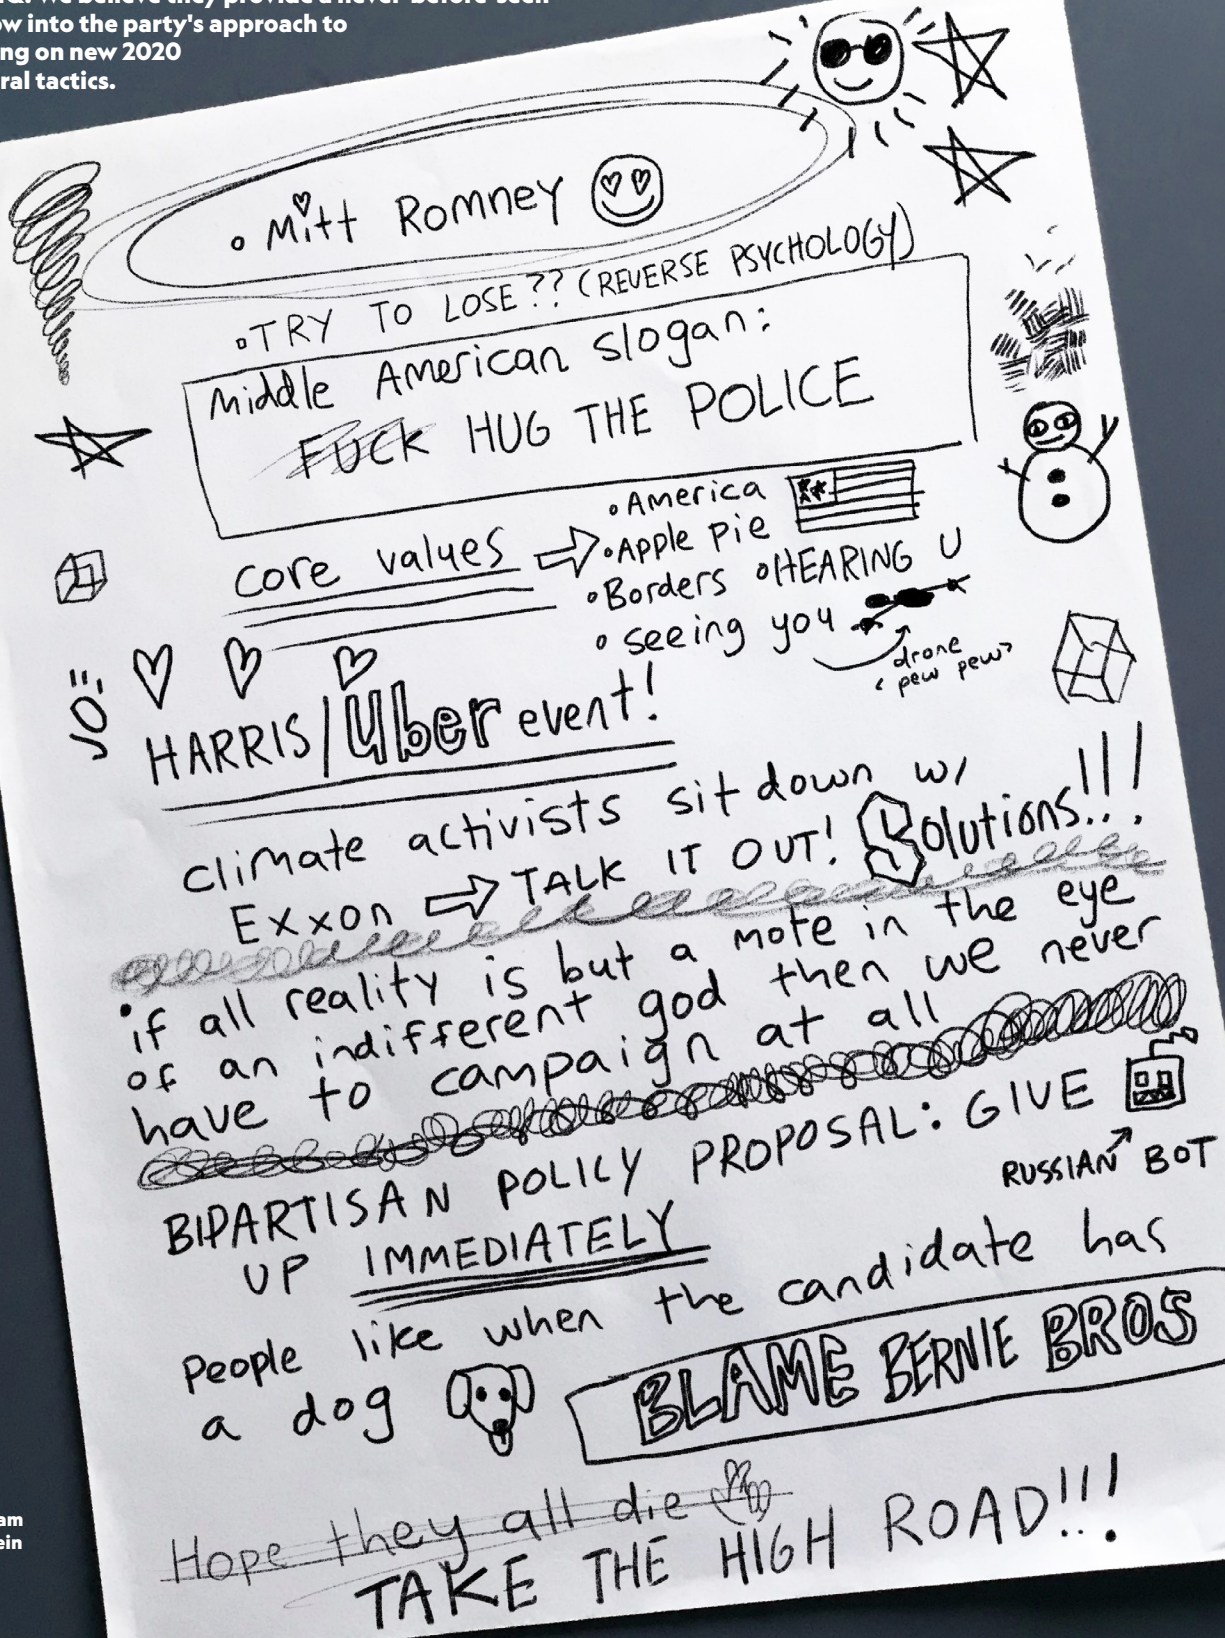 ow into the party's approach to
ng on new 2020
ral tactics.
• Mitt Romney
• TRY TO LOSE?? (REVERSE PSYCHOLOGY)
Middle American slogan:
FUCK HUG THE POLICE
core values
• America
• Apple pie
• Borders • HEARING U
• seeing you
drone
pew pew
HARRIS/Uber event!
climate activists sit down w/
Exxon TALK IT OUT! Solutions!!!
• if all reality is but a mote in the eye
of an indifferent god then we never
have to campaign at all
BIPARTISAN POLICY PROPOSAL: GIVE
RUSSIAN BOT
UP IMMEDIATELY
People like when the candidate has
a dog
BLAME BERNIE BROS
Hope they all die
TAKE THE HIGH ROAD!!!
am
ein